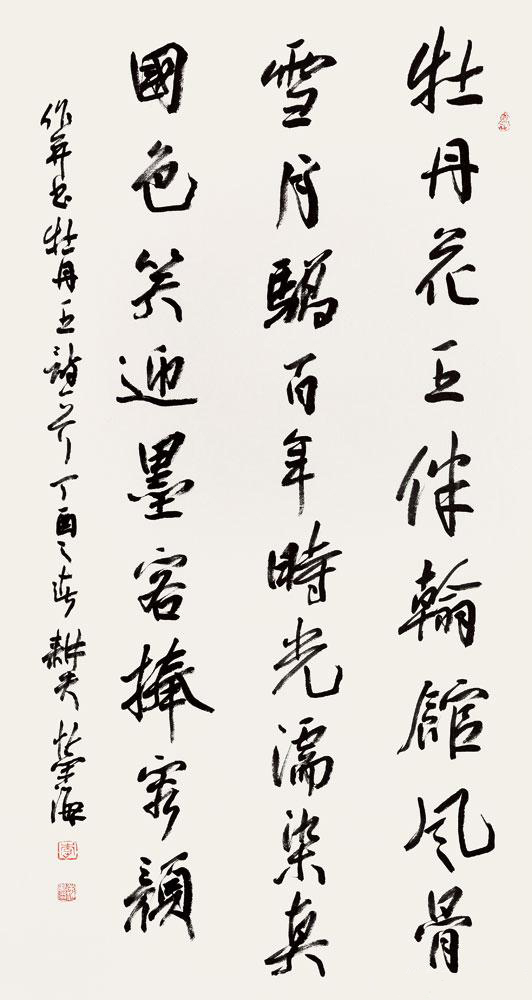 牡丹花王伴翰館風骨
雪驕百年時光濡染真
國色笑迎墨客捧容顏
作并书牡丹王詩一首丁酉之春耕夫海